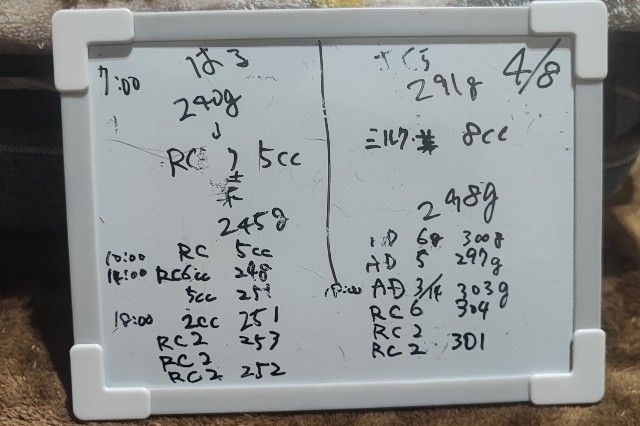 4/8
はる
7:00
240g
↓
RC 5cc
245g
10:00 RC 5cc
14:00 RC6cc 248
5cc 251
18:00 2cc 251
RC2 253
RC2
RC2 252
さくら
291g
ミルク 8cc
298g
AD 6g 300g
AD 5 297g
18:00 AD 3/14 303g
RC6 304
RC2
RC2 301